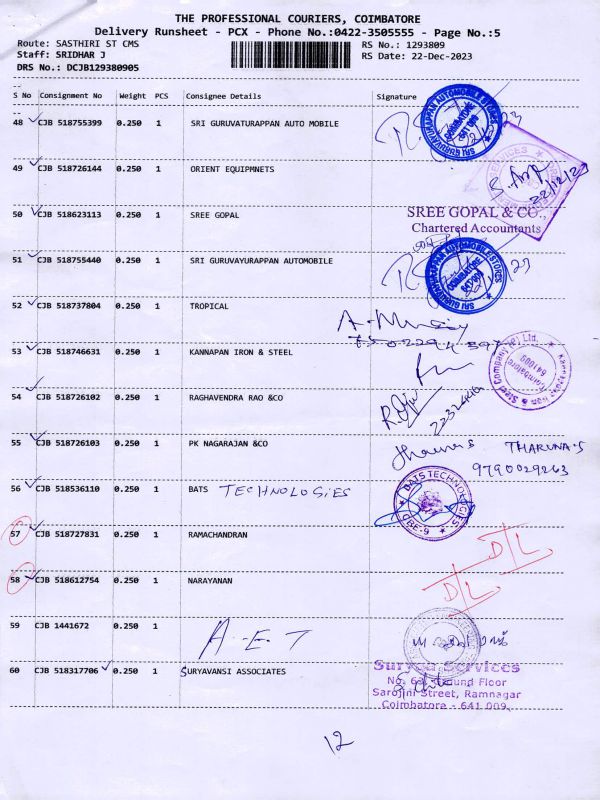 THE PROFESSIONAL COURIERS, COIMBATORE
Delivery Runsheet - PCX - Phone No.:0422-3505555 - Page No.:5
Route: SASTHIRI ST CMS RS No.: 1293809
Staff: SRIDHAR J RS Date: 22-Dec-2023
DRS No.: DCJB129380905
S No Consignment No Weight PCS Consignee Details Signature
48 CJB 518755399 0.250 1 SRI GURUVATURAPPAN AUTO MOBILE
SRI GURUVAYURAPPAN AUTOMOBILE STORES COIMBATORE
49 CJB 518726144 0.250 1 ORIENT EQUIPMNETS
22/12/23
50 CJB 518623113 0.250 1 SREE GOPAL
SREE GOPAL & CO.,
Chartered Accountants
51 CJB 518755440 0.250 1 SRI GURUVAYURAPPAN AUTOMOBILE
SRI GURUVAYURAPPAN AUTOMOBILE STORES COIMBATORE
52 CJB 518737804 0.250 1 TROPICAL
53 CJB 518746631 0.250 1 KANNAPAN IRON & STEEL
Kannappan Iron & Steel Company (P) Ltd. Coimbatore 641009
54 CJB 518726102 0.250 1 RAGHAVENDRA RAO &CO
55 CJB 518726103 0.250 1 PK NAGARAJAN &CO
THARUNA'S
9790029263
56 CJB 518536110 0.250 1 BATS TECHNOLOGIES
BATS TECHNOLOGIES CBE-9
57 CJB 518727831 0.250 1 RAMACHANDRAN
D/L
58 CJB 518612754 0.250 1 NARAYANAN
D/L
59 CJB 1441672 0.250 1 A.E.T
60 CJB 518317706 0.250 1 SURYAVANSI ASSOCIATES
Suryaa Services
Ground Floor
Sarojini Street, Ramnagar
Coimbatore - 641 009.
12